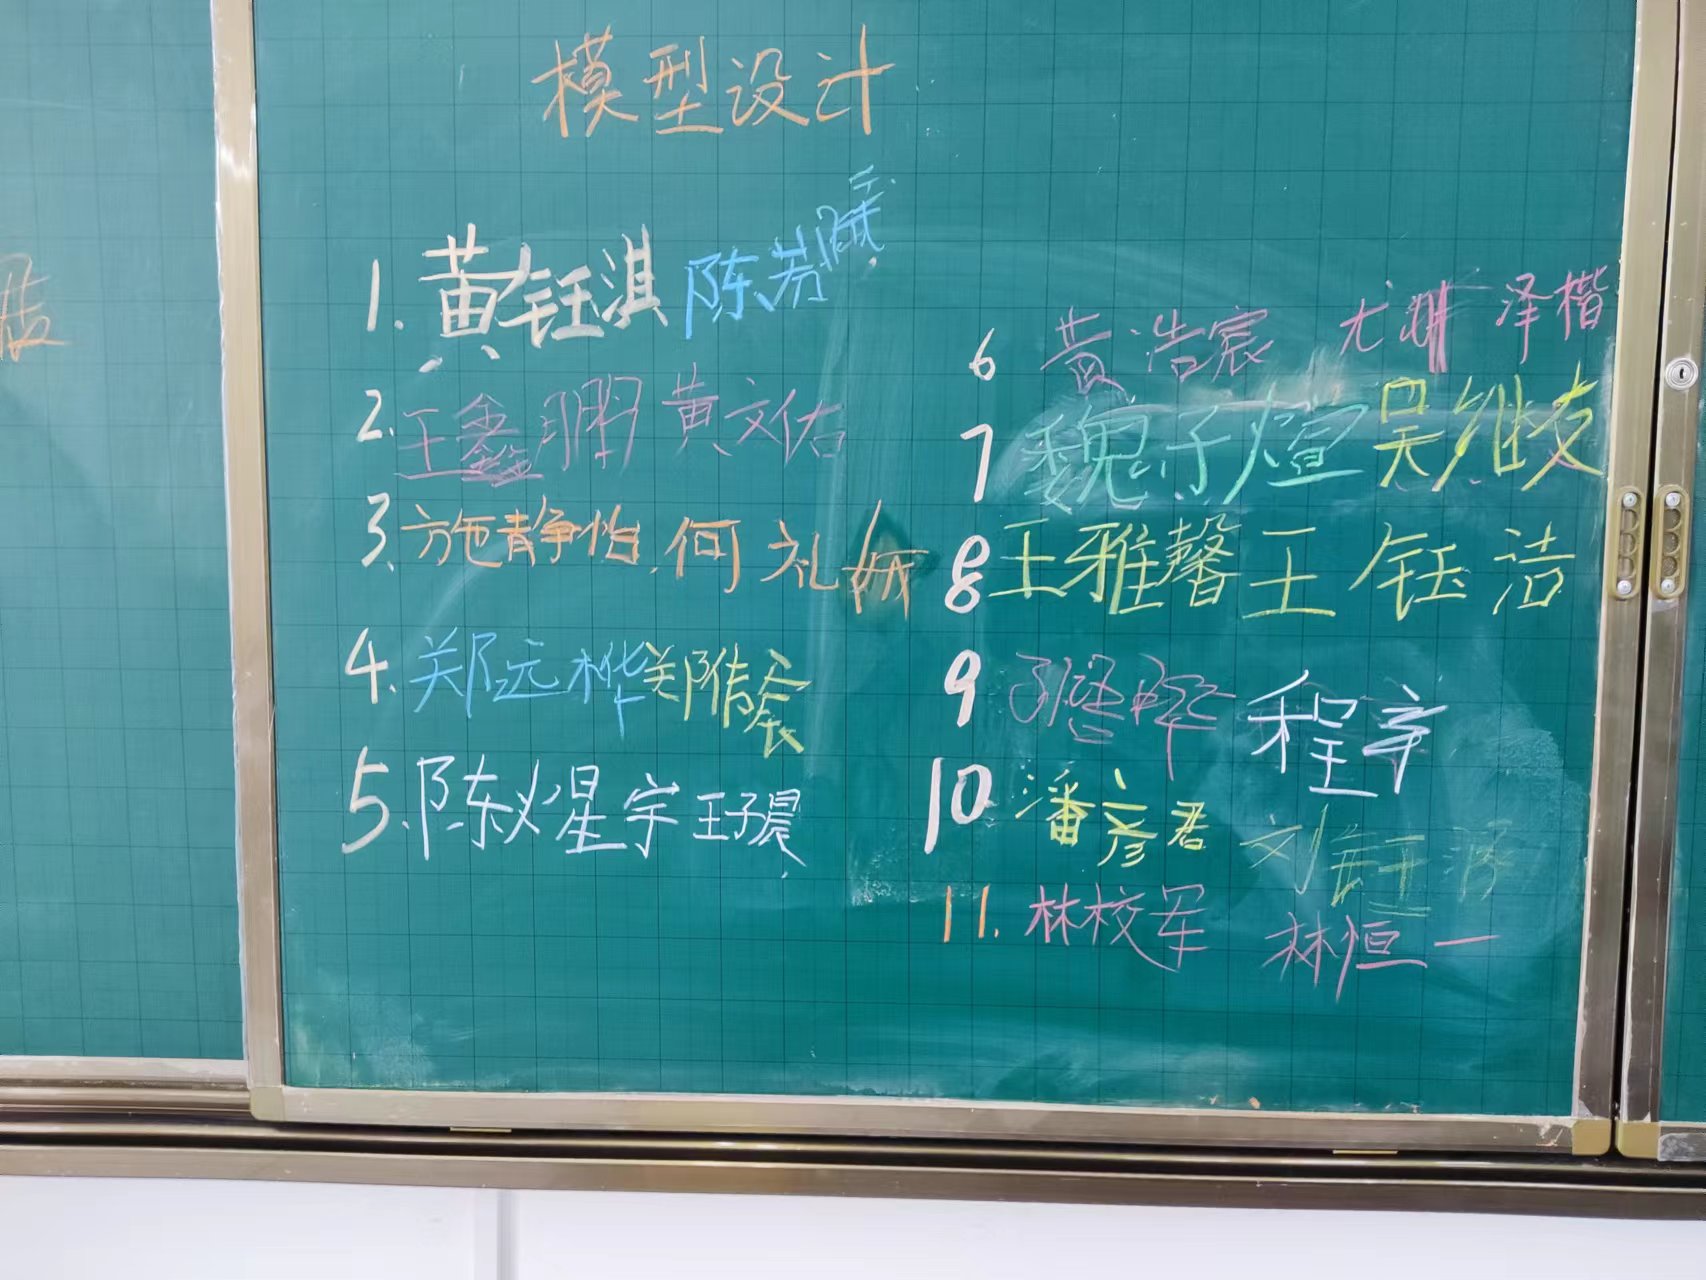 模型设计
1. 黄钰淇 陈芳
2. 王鑫鹏 黄文佑
3. 施静怡 何礼
4. 郑远桦 郑倩
5. 陈煋宇 王子晨
6 黄浩宸 尤 泽楷
7 魏子煊 吴继友
8 王雅馨 王钰洁
9 程宇
10 潘彦君 刘
11. 林校军 林恒一